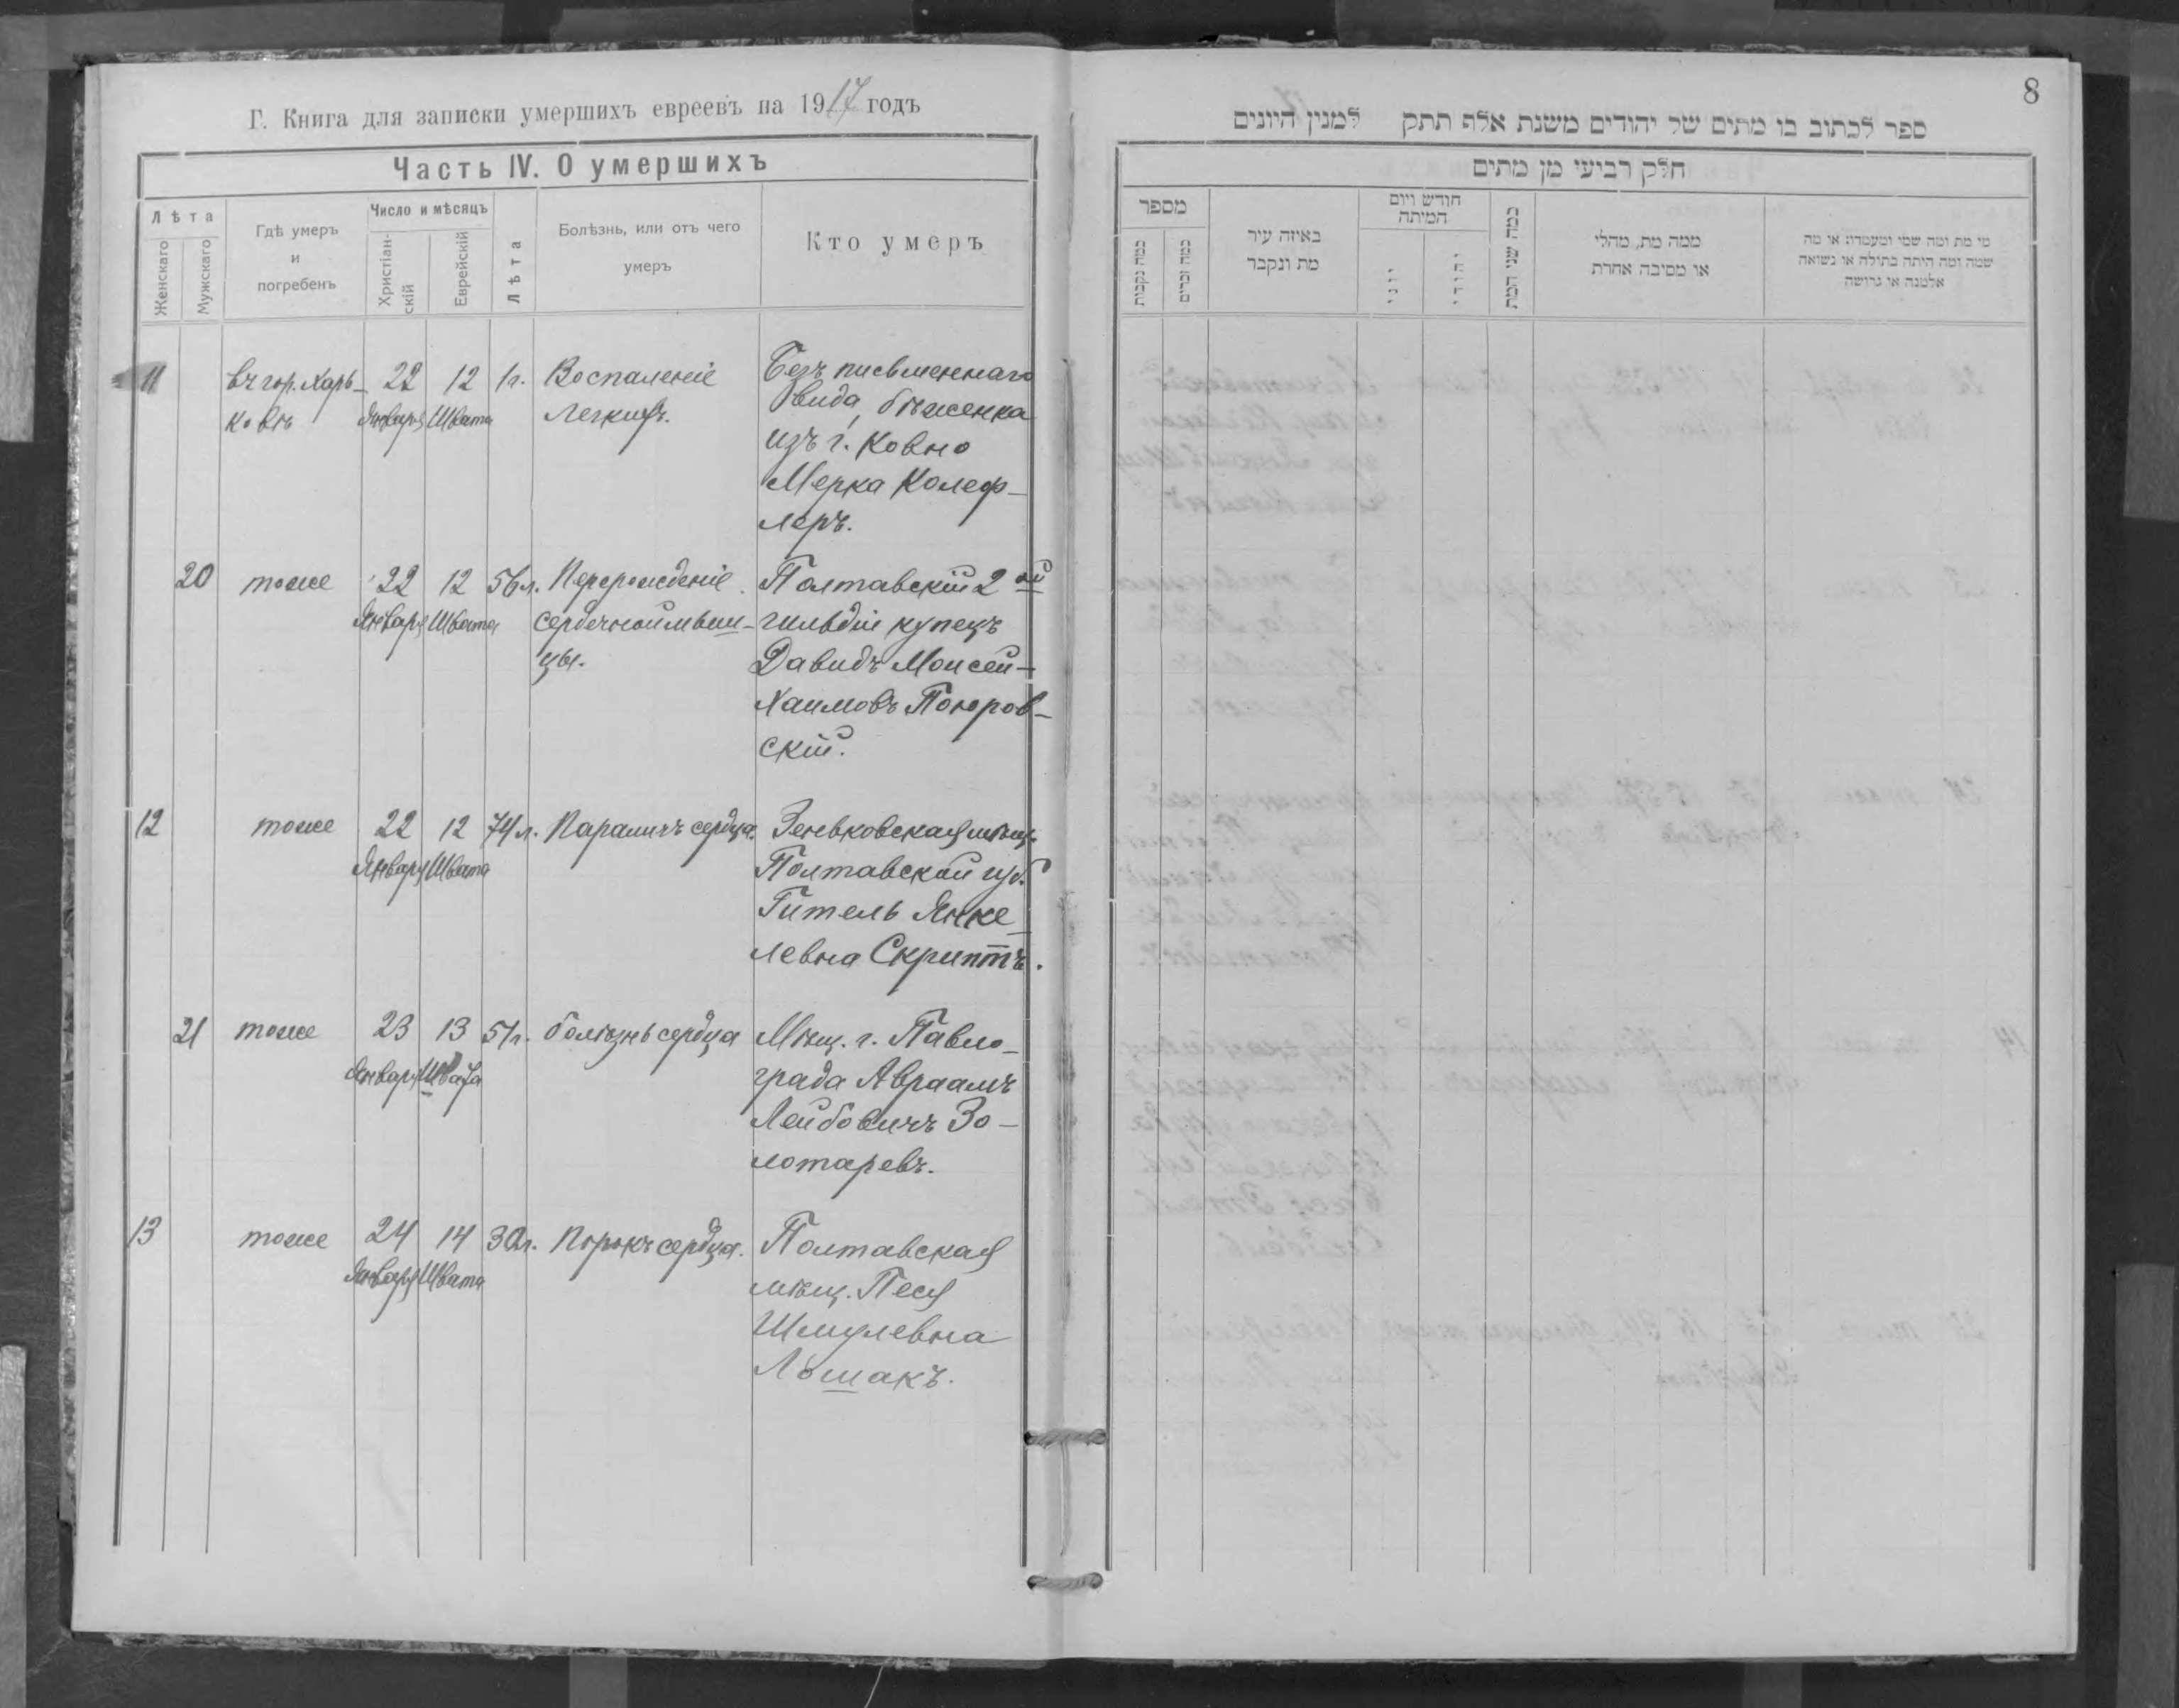 Г. Книга для записки умершихъ евреевъ на 1917 годъ
Часть IV. О умершихъ
Лѣта
Женскаго
Мужскаго
Гдѣ умеръ
и
погребенъ
Число и мѣсяцъ
Христіан-
скій
Еврейскій
Лѣта
Болѣзнь, или отъ чего
умеръ
Кто умеръ
11 въ гор. Харь- 22 12 1г. Воспаленіе Безъ письменнаго
ковѣ Января Швата Легкихъ. вида, бѣженка
изъ г. Ковно
Мерка Колеф-
леръ.
20 тоже 22 12 56л. Перерожденіе Полтавскій 2ой
Января Швата сердечной мыш- гильдіи купецъ
цы. Давидъ Моисей-
Хаимовъ Погоров-
скій.
12 тоже 22 12 74л. Параличъ сердца. Зеньковская мѣщ.
Января Швата Полтавской губ.
Гитель Янке-
левна Скриптъ.
21 тоже 23 13 51г. болѣзнь сердца Мѣщ. г. Павло-
Января Швата града Авраамъ
Лейбовичъ Зо-
лотаревъ.
13 тоже 24 14 30л. Порокъ сердца. Полтавская
Января Швата мѣщ. Песя
Шмулевна
Лошакъ.
8
ספר לכתוב בו מתים של יהודים משנת אלף תתק למנין היונים
חלק רביעי מן מתים
מספר
כמה נקבות
כמה זכרים
באיזה עיר
מת ונקבר
חודש ויום
המיתה
יוני
יהודי
כמה שני המת
ממה מת, מחלי
או מסיבה אחרת
מי מת ומה שמו ומעמדו או מה
שמה ומה היתה בתולה או נשואה
אלמנה או גרושה